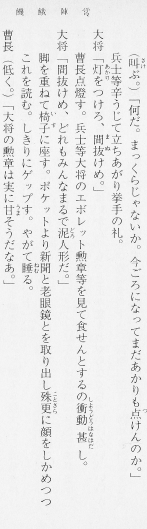 饑餓陣営
(叫ぶ。)「何だ。まっくらじゃないか。今ごろになってまだあかりも点けんのか。」
兵士等辛うじて立ちあがり挙手の礼。
大将「灯をつけろ、間抜けめ。」
曹長点燈す。兵士等大将のエボレット勲章等を見て食せんとするの衝動甚し。
大将「間抜けめ、どれもみんなまるで泥人形だ。」
脚を重ねて椅子に座す。ポケットより新聞と老眼鏡とを取り出し殊更に顔をしかめつつ
これを読む。しきりにゲップす。やがて睡る。
曹長(低く。)「大将の勲章は実に甘そうだなあ。」